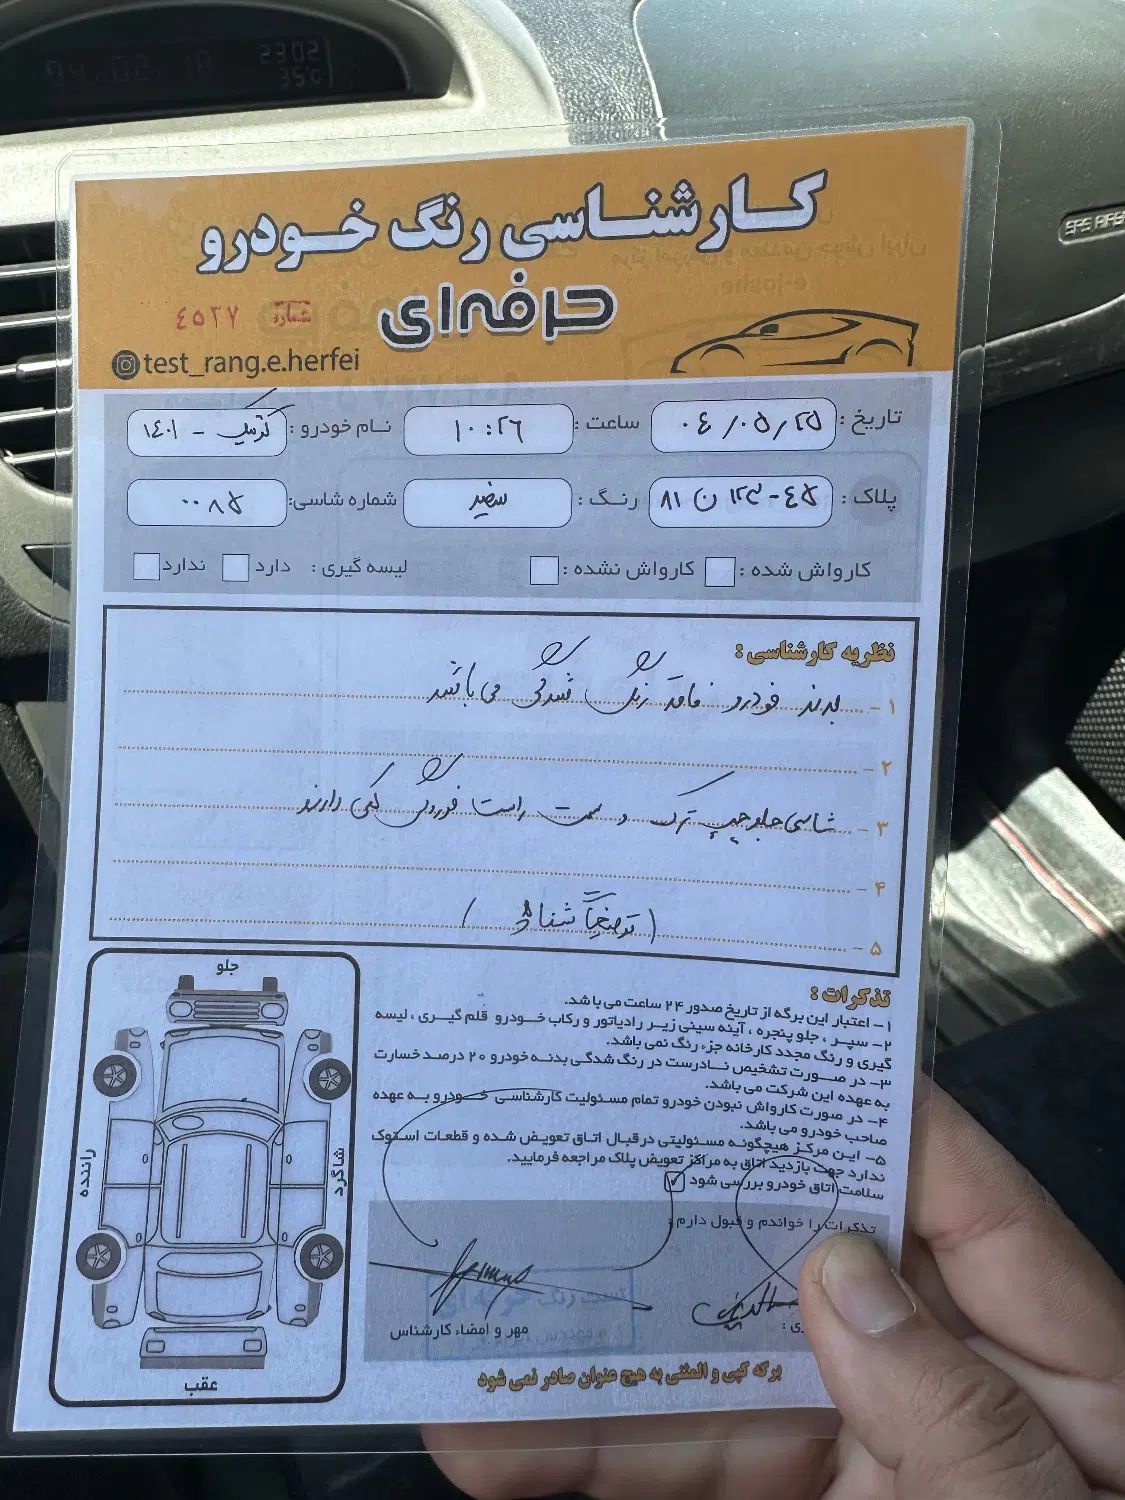 94.02.18
2302
35°C
کارشناسی رنگ خودرو
حرفه‌ای
شماره ٤٥٢٧
test_rang.e.herfei
تاریخ: ۰٤/۰۵/۲۵ ساعت: ۱۰:۲٦ نام خودرو: کوئیک - ۱٤۰۱
پلاک: ٤۵-۱۲۳ ن ۸۱ رنگ: سفید شماره شاسی: ۰۰۸۵
کارواش شده: کارواش نشده: لیسه گیری: دارد ندارد
نظریه کارشناسی:
۱- بدنه خودرو فاقد رنگ شدگی می باشد
۲-
۳- شاسی جلو چپ ترک و سمت راست خوردگی کمی دارند
۴-
۵-
تذکرات:
۱- اعتبار این برگه از تاریخ صدور ۲۴ ساعت می باشد.
۲- سپر، جلو پنجره، آینه سینی زیر رادیاتور و رکاب خودرو قلم گیری، لیسه
گیری و رنگ مجدد کارخانه جزء رنگ نمی باشد.
۳- در صورت تشخیص نادرست در رنگ شدگی بدنه خودرو ۲۰ درصد خسارت
به عهده این شرکت می باشد.
۴- در صورت کارواش نبودن خودرو تمام مسئولیت کارشناسی خودرو به عهده
صاحب خودرو می باشد.
۵- این مرکز هیچگونه مسئولیتی در قبال اتاق تعویض شده و قطعات استوک
ندارد جهت بازدید اتاق به مراکز تعویض پلاک مراجعه فرمایید.
سلامت اتاق خودرو بررسی شود ✓
تذکرات را خواندم و قبول دارم:
مهر و امضاء کارشناس
برگه کپی و المثنی به هیچ عنوان صادر نمی شود
جلو
راننده
شاگرد
عقب